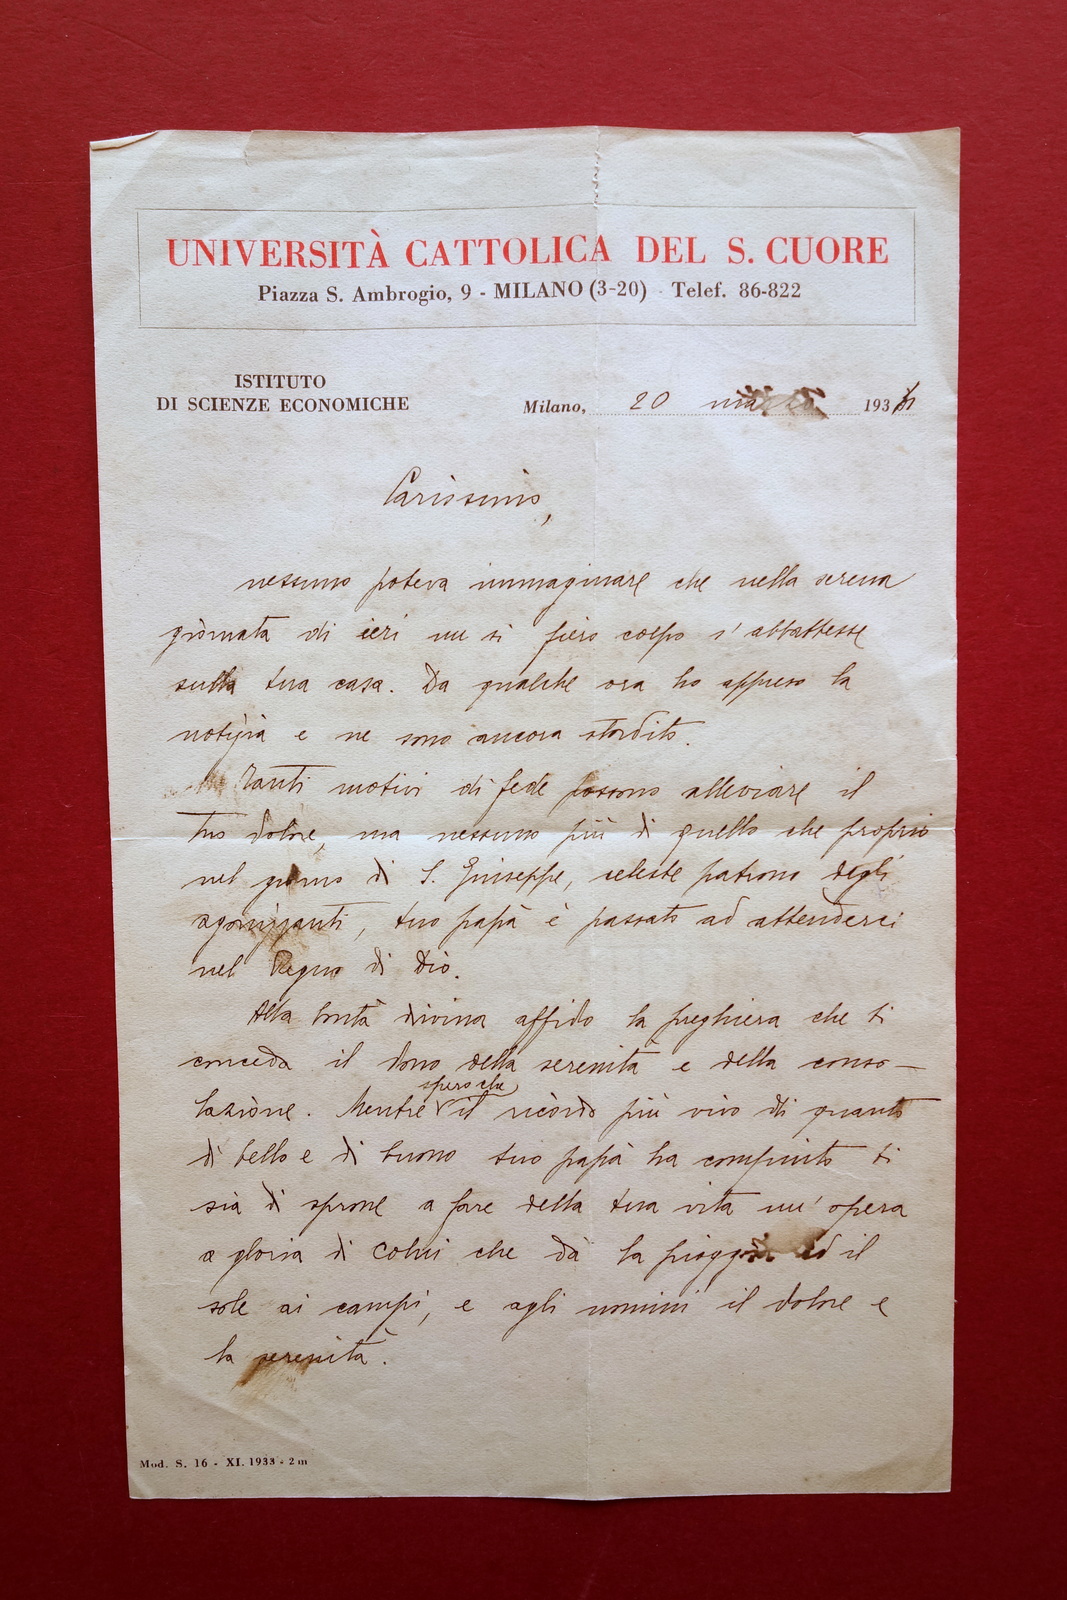 UNIVERSITÀ CATTOLICA DEL S. CUORE
Piazza S. Ambrogio, 9 - MILANO (3-20) - Telef. 86-822
ISTITUTO
DI SCIENZE ECONOMICHE
Milano, 20 marzo 193
Carissimo,
nessuno poteva immaginare che nella serena
giornata di ieri un sì fiero colpo s'abbattesse
sulla tua casa. Da qualche ora ho appreso la
notizia e ne sono ancora stordito.
Tanti motivi di fede possono alleviare il
tuo dolore, ma nessuno più di quello che proprio
nel giorno di S. Giuseppe, celeste patrono degli
agonizzanti, tuo papà è passato ad attenderci
nel Regno di Dio.
Alla bontà divina affido la preghiera che ti
conceda il dono della serenità e della conso-
spero che
lazione. Mentre il ricordo più vivo di quanto
di bello e di buono tuo papà ha compiuto ti
sia di sprone a fare della tua vita un'opera
a gloria di Colui che dà la pioggia ed il
sole ai campi, e agli uomini il dolore e
la serenità.
Mod. S. 16 - XI. 1933 - 2 m